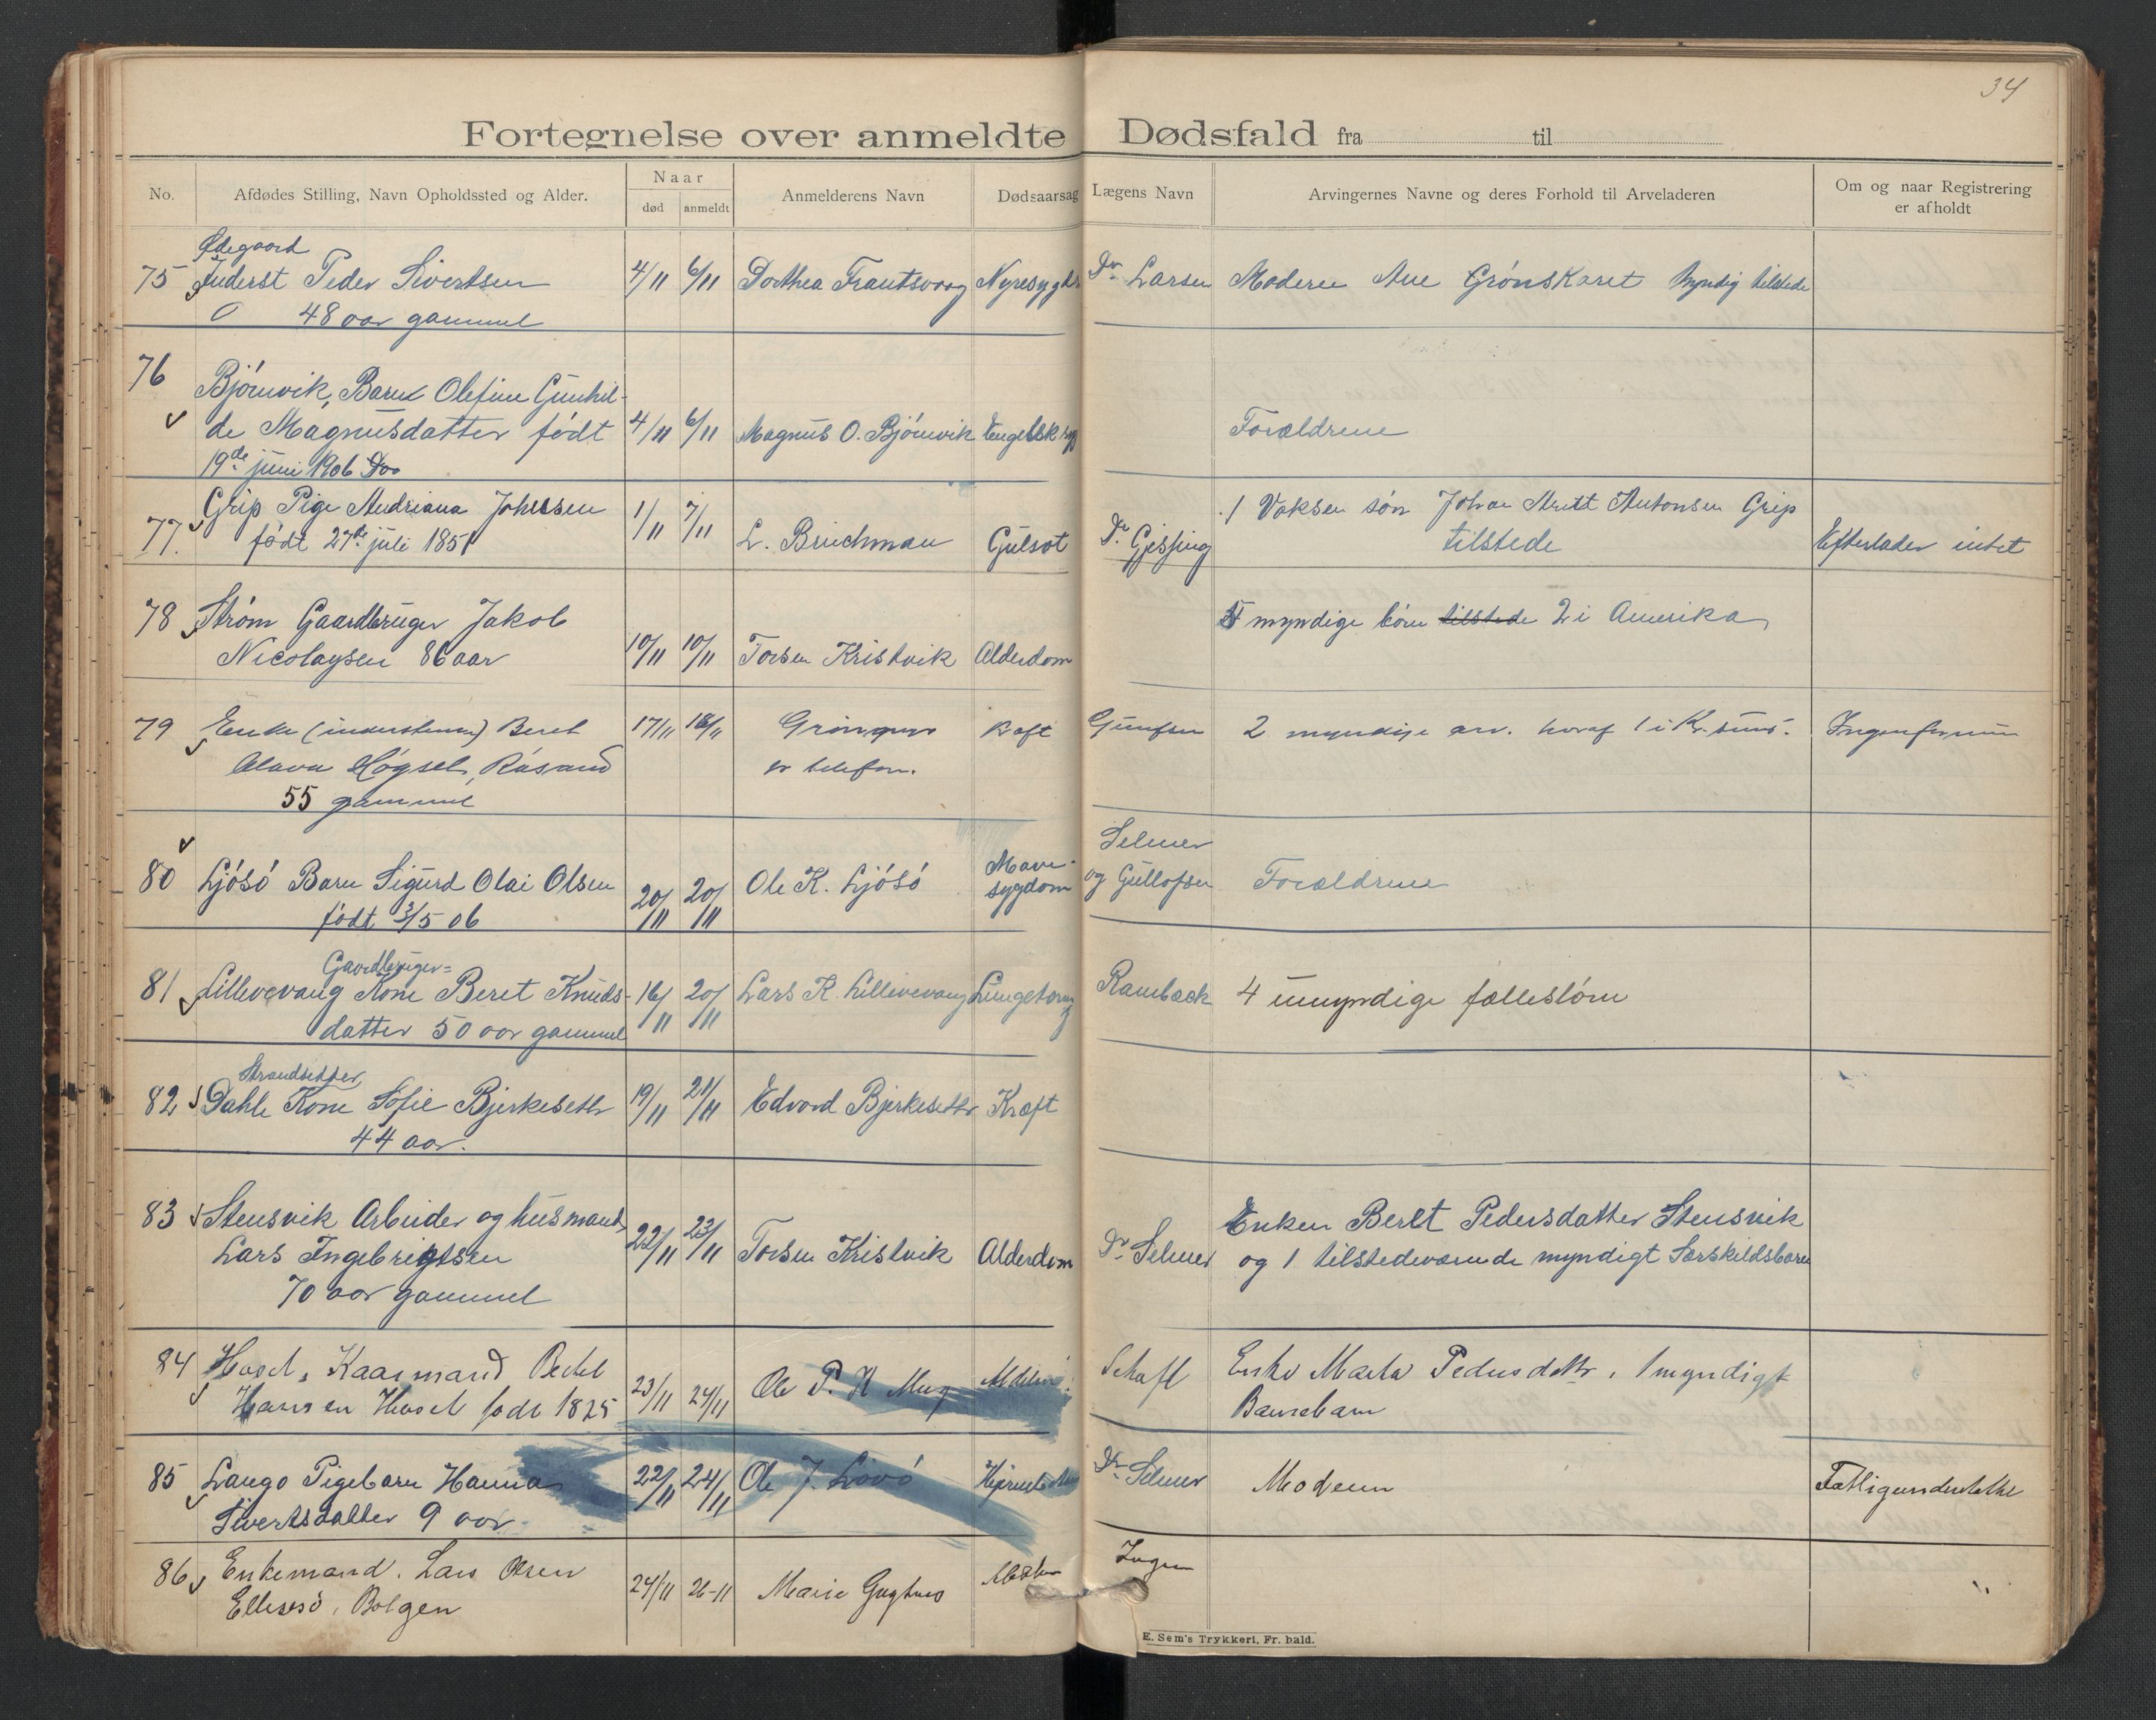 34
Fortegnelse over anmeldte Dødsfald fra til
No.
Afdødes Stilling, Navn Opholdssted og Alder.
Naar
død
anmeldt
Anmelderens Navn
Dødsaarsag
Lægens Navn
Arvingernes Navne og deres Forhold til Arveladeren
Om og naar Registrering
er afholdt
Ødegaard
75 Inderst Peder Sivertsen 4/11 6/11 Dorthea Frantsvaag Nyresygd Dr Larsen Moderen Ane Grønskaret Myndig tilstede
48 aar gammel
76
Bjørnvik, Barn Olefine Gunhil-
de Magnusdatter født 4/11 6/11 Magnus O. Bjørnvik Engelsk syg Forældrene
19de juni 1906
Grip Pige Andriana Johnsen 1/11 7/11 1 Voksen søn Johan Antonsen Grip
77. født 27de juli 1851 L. Bruchman Gulsot Dr. Gjessing tilstede Efterlader intet
78 Strøm Gaardbruger Jakob 5 myndige børn tilstede 2 i Amerika
Nicolaysen 86 aar 10/11 10/11 Torsen Kristvik Alderdom
79 Enke (inderstenke) Beret 17/11 18/11 Kræft 2 myndige arv. hvoraf 1 i Kr.sund.
Olava Høgset, Råsand pr telefon.
55 gammel
Selmer
80 Ljósó Barn Sigurd Olai Olsen 20/11 20/11 Ole K. Ljósó Mave-
sygdom og Gullofsen Forældrene
født 3/5 06
Gaardbruger=
81 Lillevevang Kone Beret Knuds- 16/11 20/11 Lars K. Lillevevang Rambæck 4 umyndige fællesbørn
datter 50 aar gammel
Strandsidder
82 Dahle Kone Sofie Bjerkeseth 19/11 21/11 Edvard Bjerkeseth Kræft
44 aar.
83 Stensvik Arbeider og husmand Enken Beret Pedersdatter Stensvik
Lars Ingebrigtsen 22/11 23/11 Torsen Kristvik Alderdom Dr Selmer og 1 tilstedeværende myndigt Særskildsbarn
70 aar gammel
84 Hoset, Kaarmand Peder 23/11 24/11 Ole P. H Enke Marta Pedersdatr, 1 myndigt
Hansen Hoset født 1825 Barnebarn
85 Langø Pigebarn Hanna 22/11 24/11 Ole J. Lovó Dr Selmer Moderen Fattigunderstøttet
Sivertsdatter 9 aar
86 Enkemand. Lars Olsen 24/11 26-11 Marie Ingen
Bolgen
E. Sem's Trykkeri, Fr. hald.